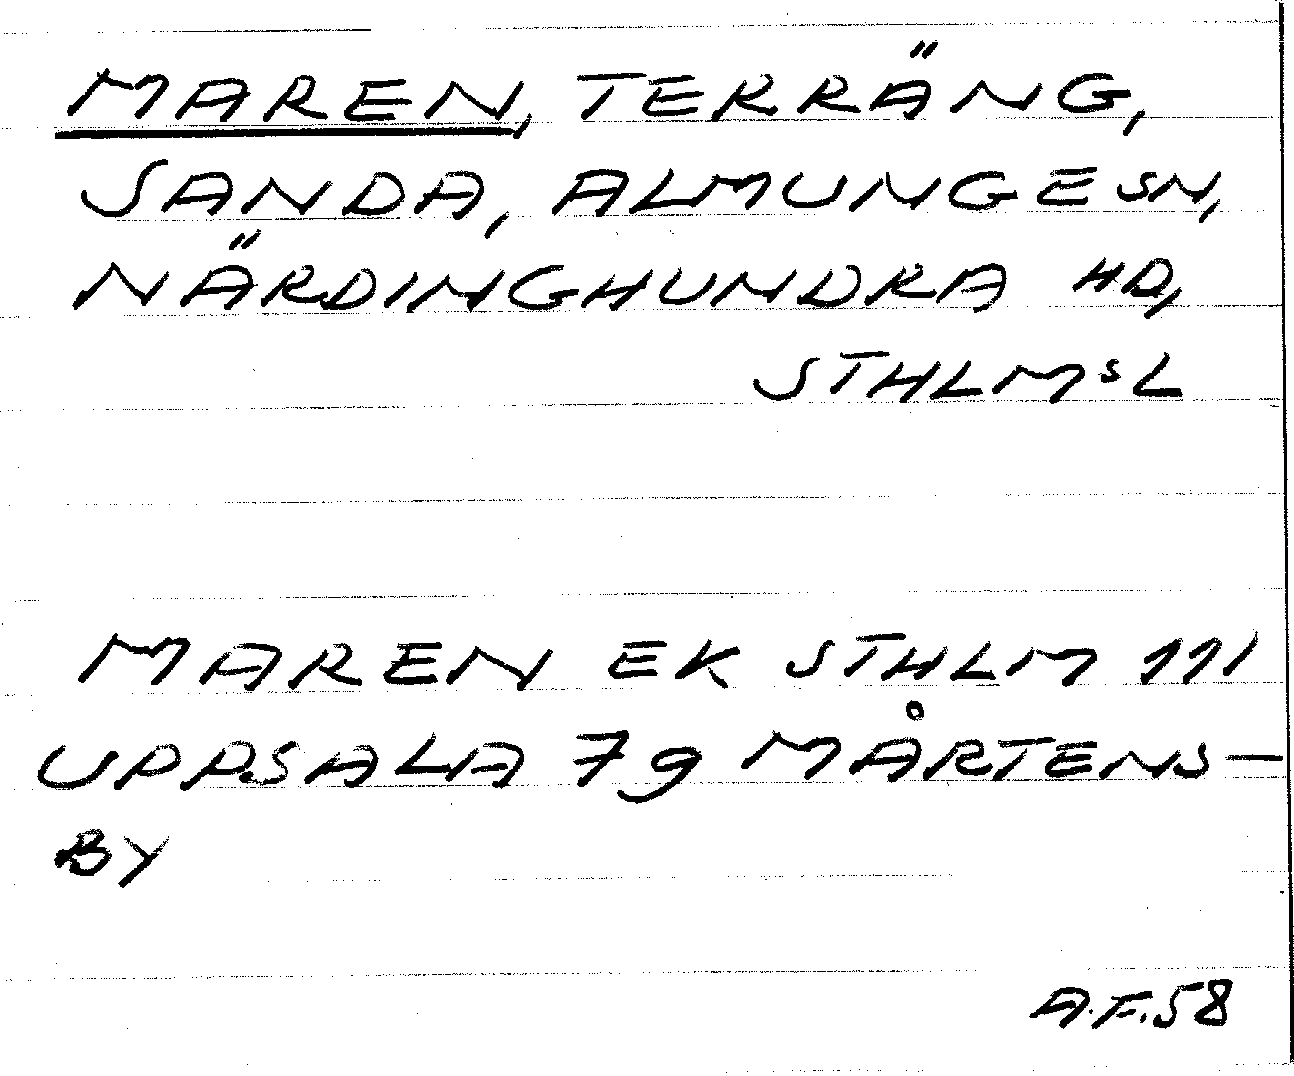 MAREN, TERRÄNG,
SANDA, ALMUNGE SN,
NÄRDINGHUNDRA HD,
STHLMS L
MAREN EK STHLM 111
UPPSALA 7g MÅRTENS-
BY
A.F. 58